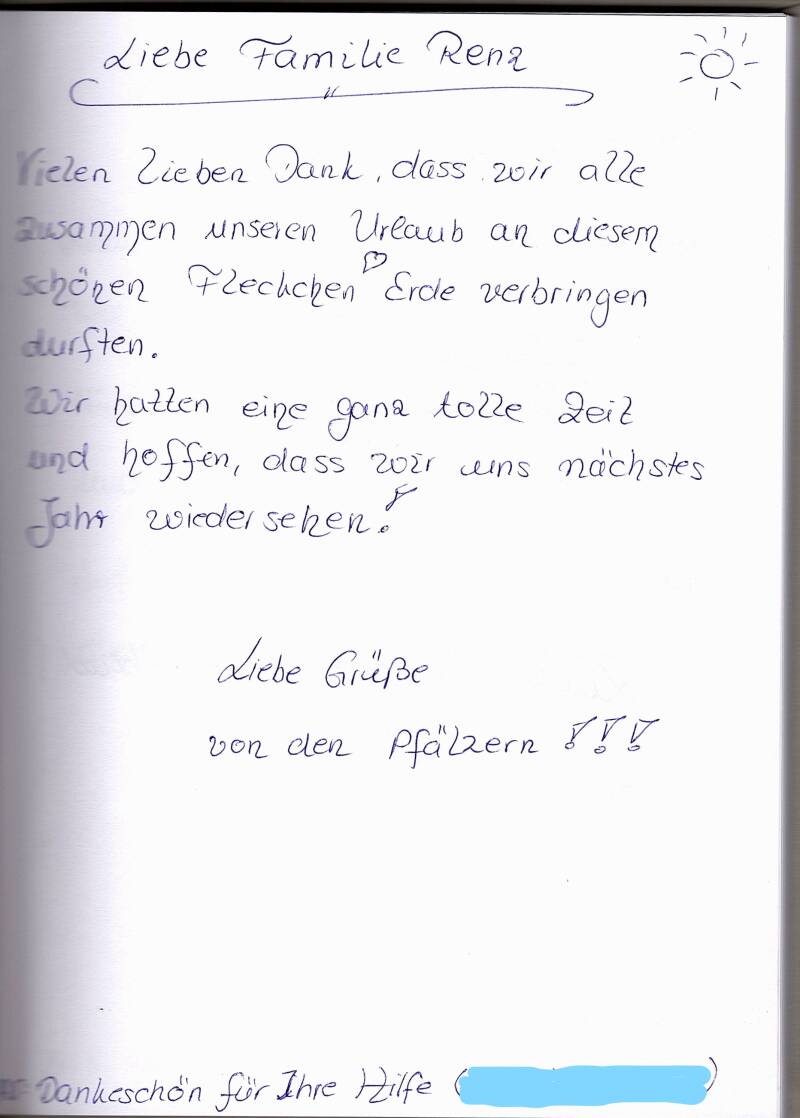 Liebe Familie Renz
Vielen lieben Dank, dass wir alle
zusammen unseren Urlaub an diesem
schönen Fleckchen Erde verbringen
durften.
Wir hatten eine ganz tolle Zeit
und hoffen, dass wir uns nächstes
Jahr wiedersehen!
Liebe Grüße
von den Pfälzern !!!
Dankeschön für Ihre Hilfe ( )